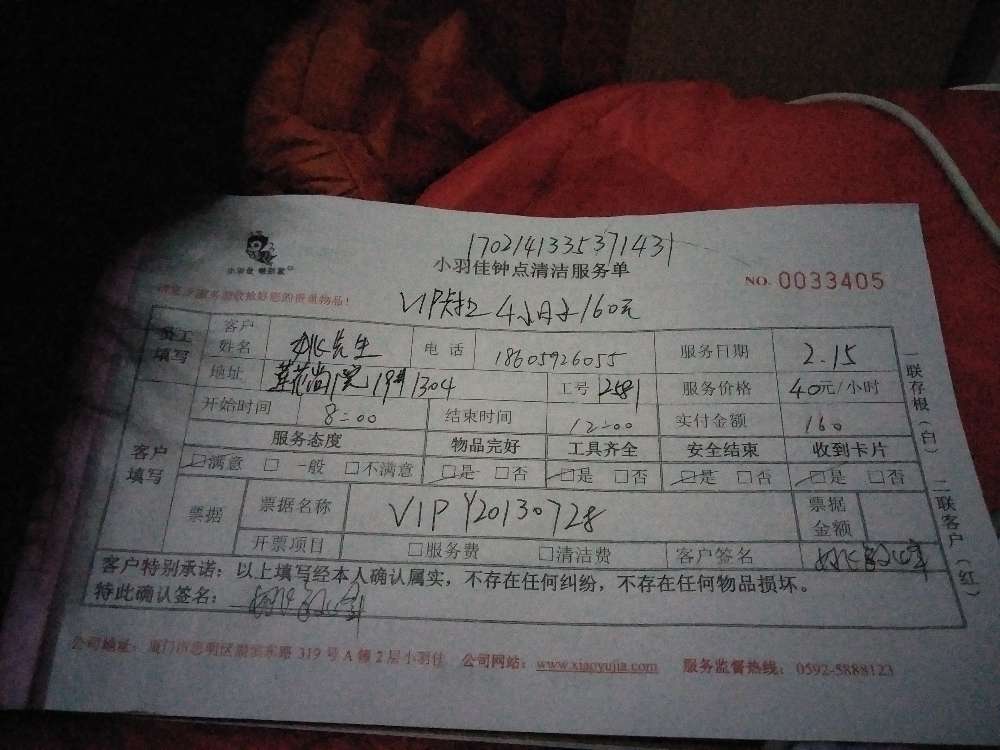 1702141335371431
小羽佳钟点清洁服务单
NO. 0033405
VIP卡扣 4小时 160元
员工填写
客户姓名 姚先生 电话 18605926055 服务日期 2.15
地址 莲花尚院 1304 工号 2581 服务价格 40元/小时
开始时间 8:00 结束时间 12:00 实付金额 160
客户填写
服务态度 物品完好 工具齐全 安全结束 收到卡片
□满意 □一般 □不满意 □是 □否 □是 □否 □是 □否 □是 □否
票据 票据名称 VIP Y20130728 票据金额
开票项目 □服务费 □清洁费 客户签名
客户特别承诺：以上填写经本人确认属实，不存在任何纠纷，不存在任何物品损坏。
特此确认签名：
一联存根（白） 二联客户（红）
公司地址：厦门市思明区 319号A幢2层小羽佳 公司网站：www.xiaoyujia.com 服务监督热线：0592-5888123